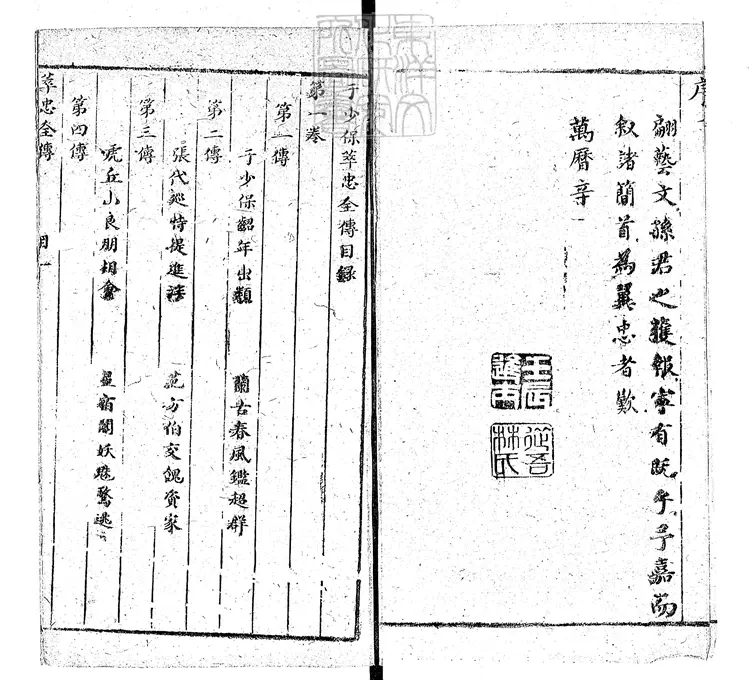 翮藝文孫君之獲報寧有既乎予嘉而
叙諸簡首為翼忠者歟
萬曆辛
壬辰進士
從吾林氏
于少保萃忠全傳目錄
第一卷
第一傳
于少保齠年出類 蘭古春風鑑超群
第二傳
張代巡特提進泮 范方伯交餽資家
第三傳
虎丘山良朋相會 星宿閣妖魅驚逃
第四傳
萃忠全傳 目一